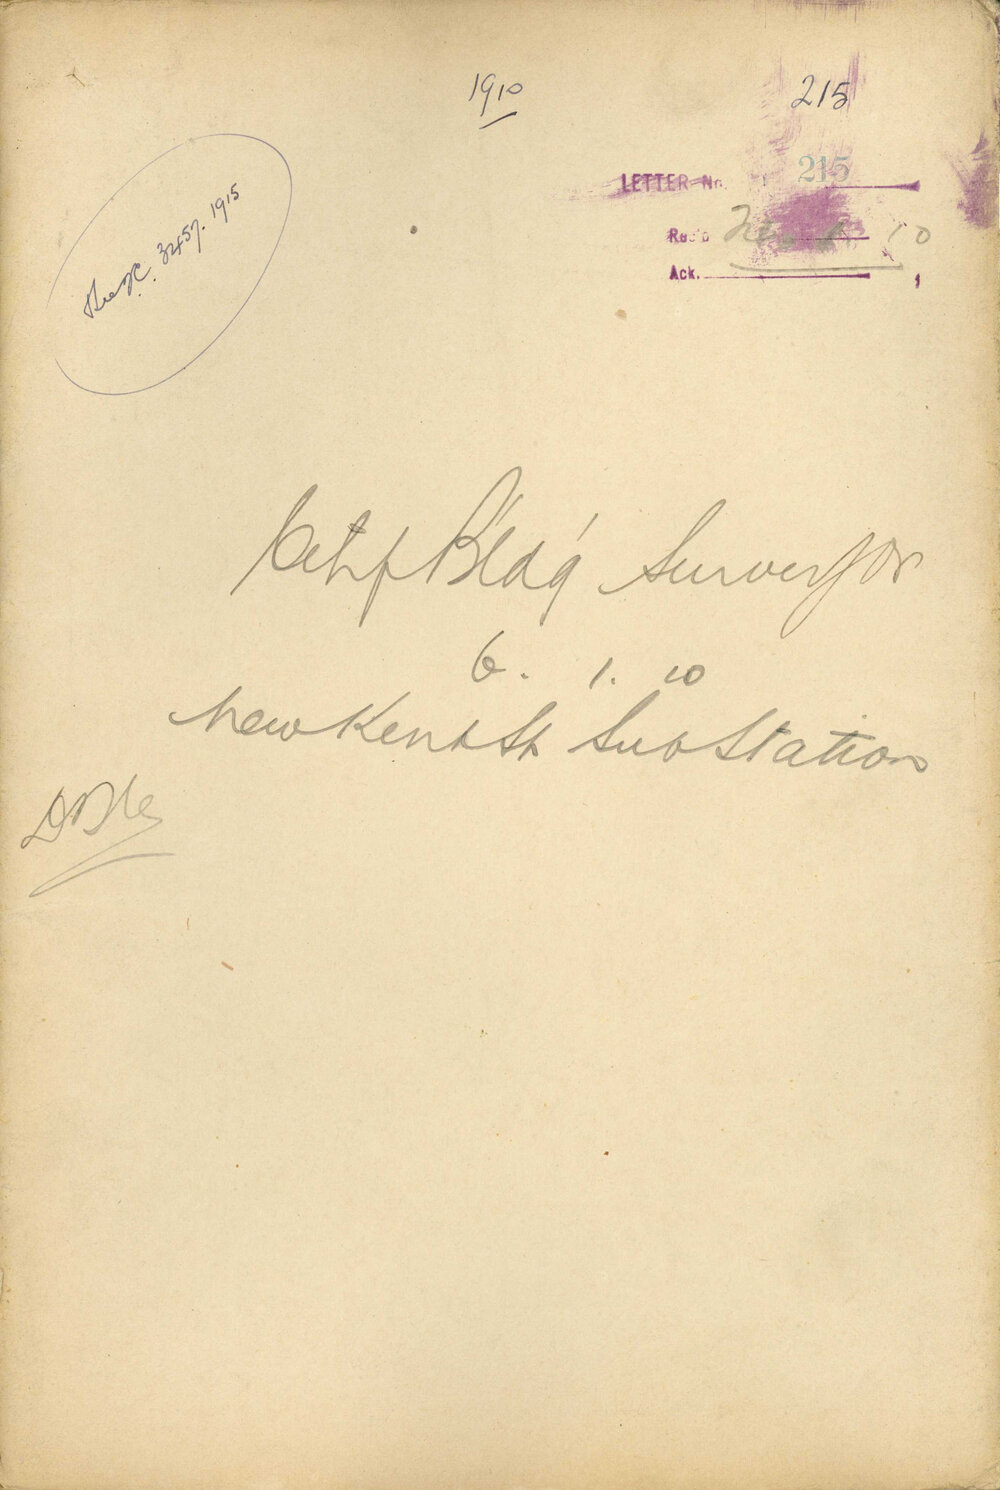 1910
215
LETTER No. 215
Rec'd 10
Ack. 1
3457. 1915
City Bldg Surveyor
6. 1. 10
New Kent St Sub Station